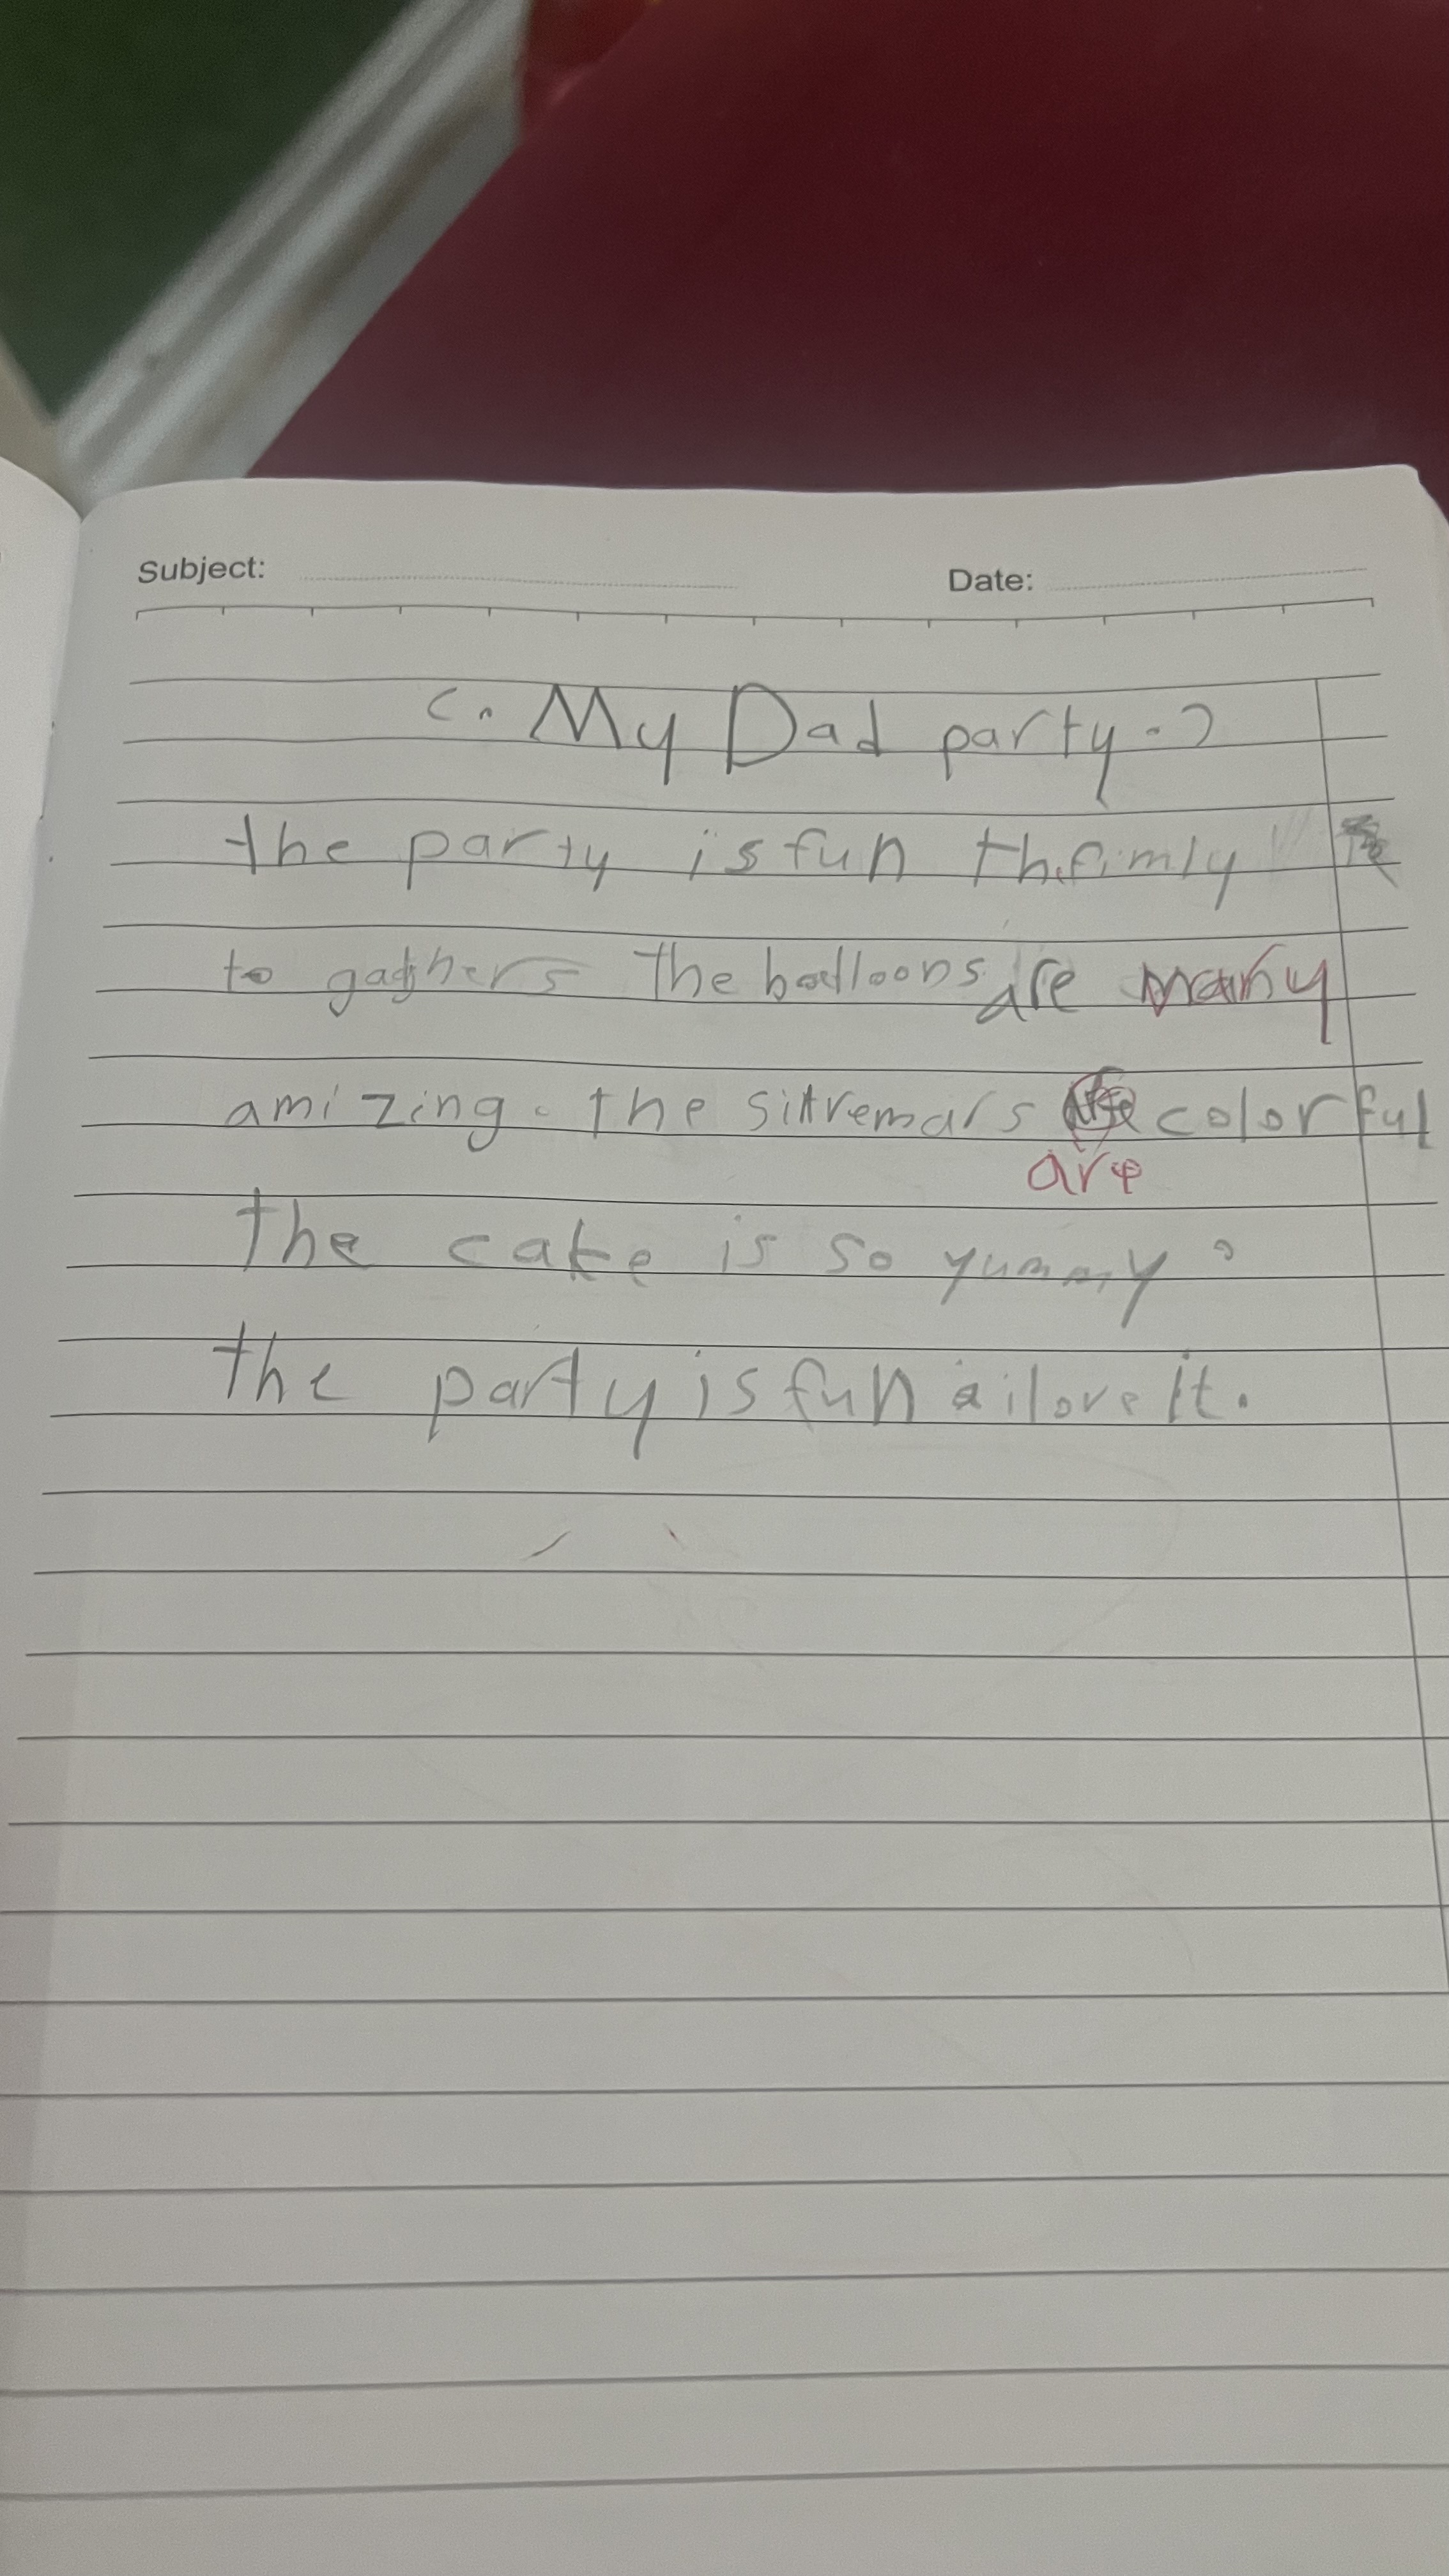 Subject: Date:
(. My Dad party .)
the party is fun the fimly
to gathers The balloons are many
amizing. the sitremars colorful
are
the cake is so yummy.
the party is fun a i love it.